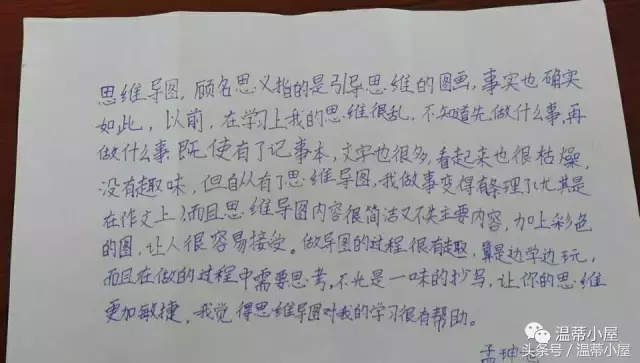 思维导图，顾名思义指的是引导思维的图画，事实也确实
如此，以前，在学习上我的思维很乱，不知道先做什么事，再
做什么事，既使有了记事本，文字也很多，看起来也很枯燥，
没有趣味，但自从有了思维导图，我做事变得有条理了（尤其是
在作文上）而且思维导图内容很简洁又不失主要内容，加上彩色
的图，让人很容易接受。做导图的过程很有趣，算是边学边玩，
而且在做的过程中需要思考，不光是一味的抄写，让你的思维
更加敏捷，我觉得思维导图对我的学习很有帮助。
孟珅
温蒂小屋
头条号 / 温蒂小屋